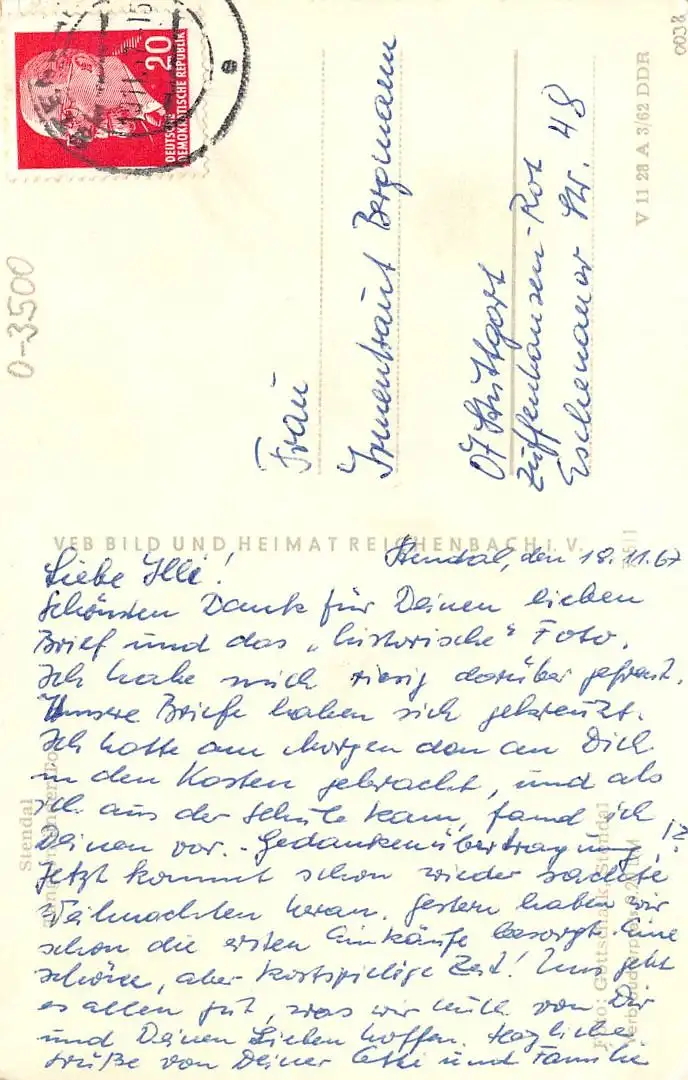 20
DEUTSCHE
DEMOKRATISCHE REPUBLIK
0038
V 11 28 A 3/62 DDR
0-3500
Frau
Irmentraut Bergmann
07 Stuttgart
Zuffenhausen-Rot
Eschenauer Str. 48
VEB BILD UND HEIMAT REICHENBACH i. V.
Stendal, den 18.11.67
Liebe Illi!
Schönsten Dank für Deinen lieben
Brief und das „historische“ Foto.
Ich habe mich riesig darüber gefreut.
Unsere Briefe haben sich gekreuzt.
Ich hatte am Morgen den an Dich
in den Kasten gebracht, und als
ich aus der Schule kam, fand ich
Deinen vor. - Gedankenübertragung!?
Jetzt kommt schon wieder sachte
Weihnachten heran. Gestern haben wir
schon die ersten Einkäufe besorgt. Eine
schöne, aber kostspielige Zeit! Uns geht
es allen gut, was wir auch von Dir
und Deinen Lieben hoffen. Herzliche
Grüße von Deiner und Familie
Stendal
Foto: Gottschalk, Stendal